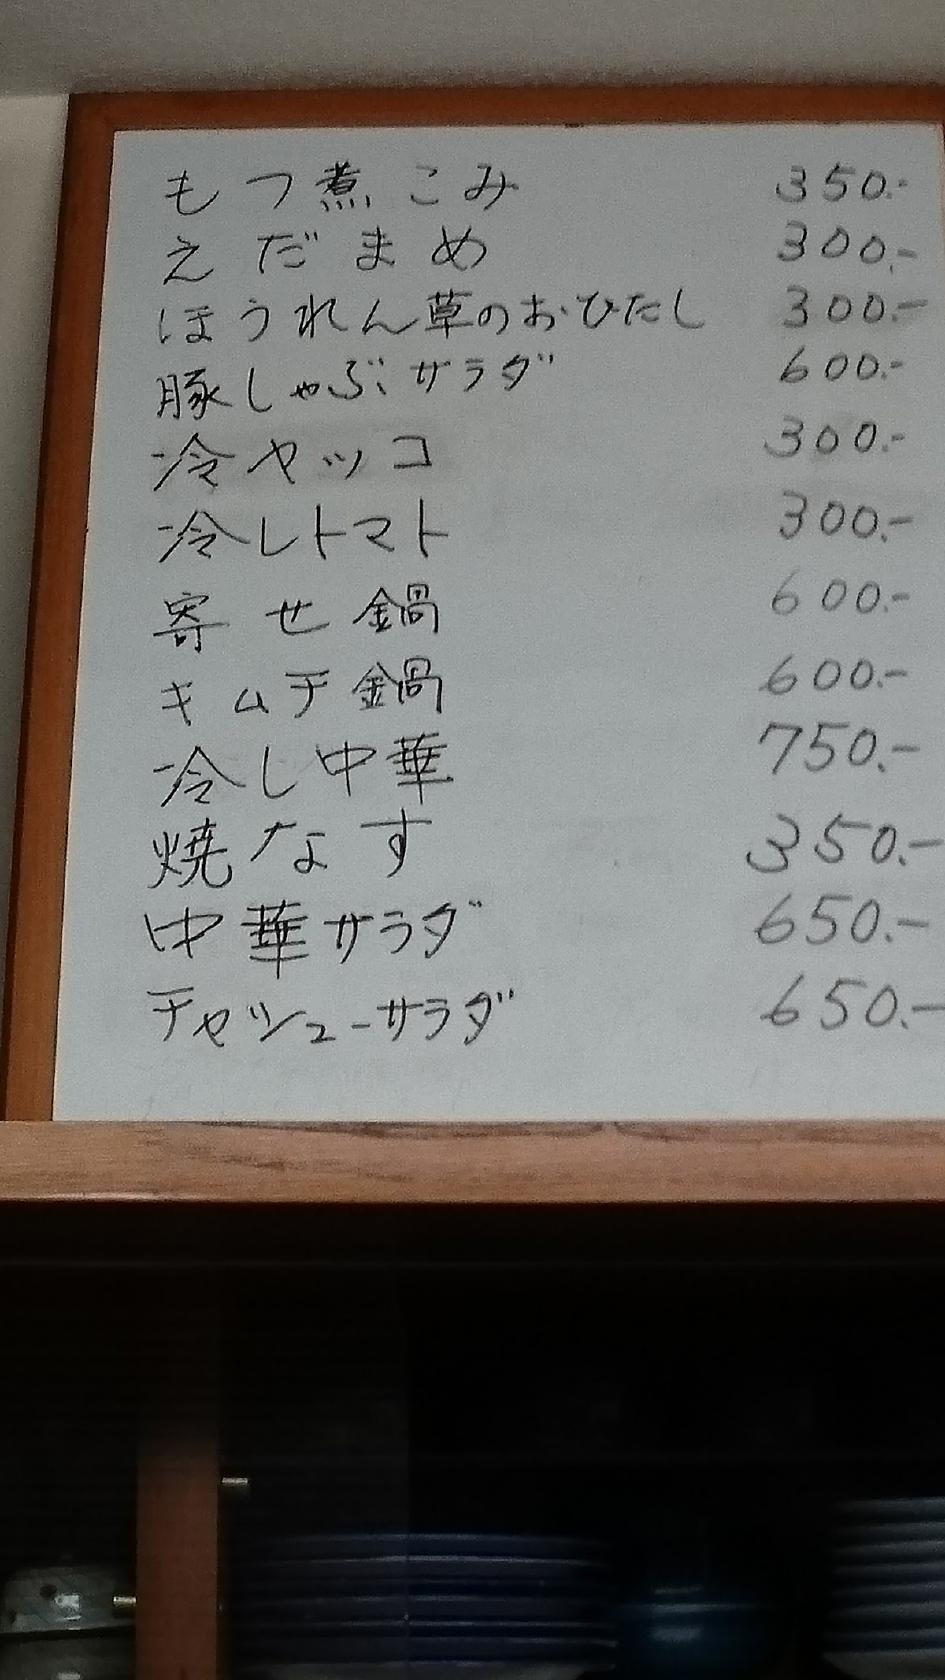 もつ煮こみ 350.-
えだまめ 300.-
ほうれん草のおひたし 300.-
豚しゃぶサラダ 600.-
冷ヤッコ 300.-
冷しトマト 300.-
寄せ鍋 600.-
キムチ鍋 600.-
冷し中華 750.-
焼なす 350.-
中華サラダ 650.-
チャーシューサラダ 650.-